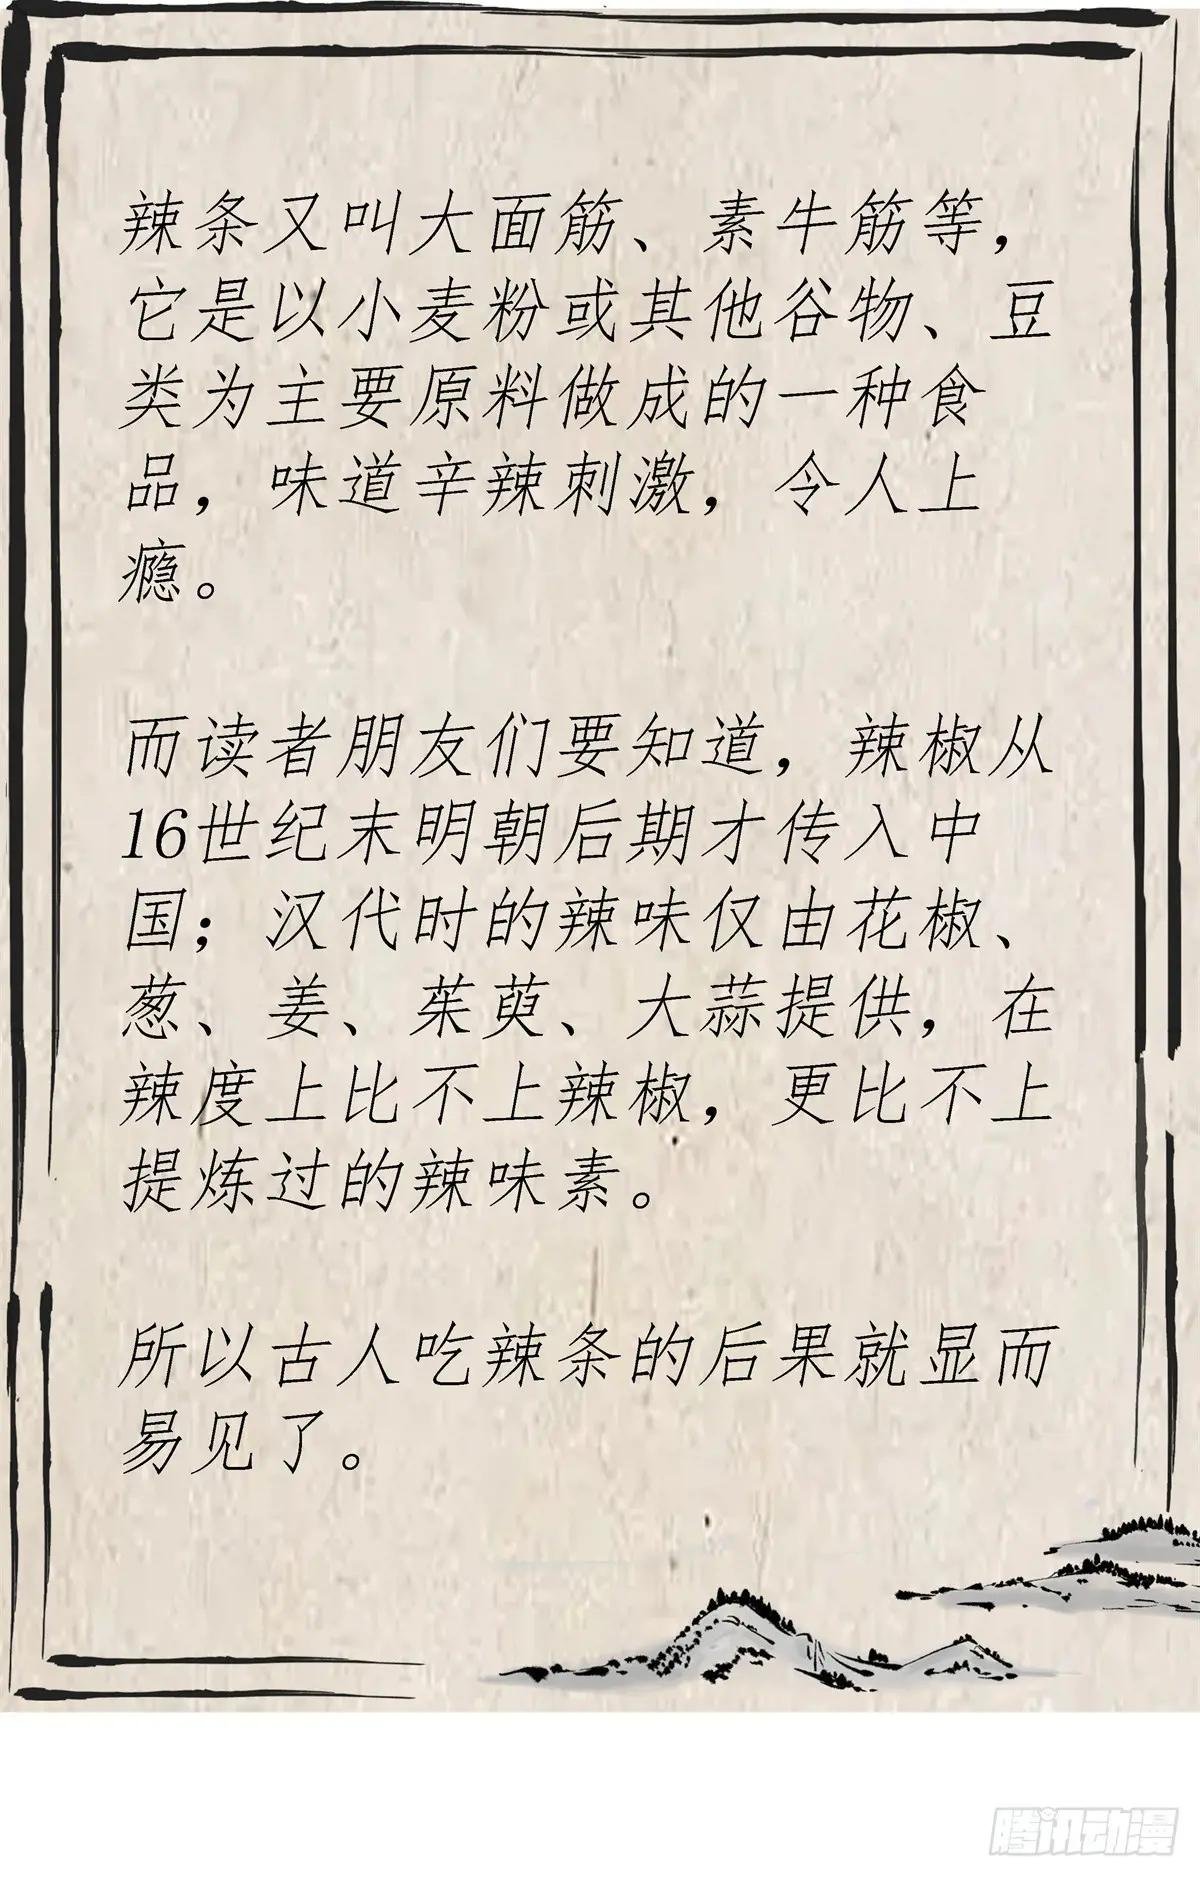 辣条又叫大面筋、素牛筋等，
它是以小麦粉或其他谷物、豆
类为主要原料做成的一种食
品，味道辛辣刺激，令人上
瘾。
而读者朋友们要知道，辣椒从
16世纪末明朝后期才传入中
国；汉代时的辣味仅由花椒、
葱、姜、茱萸、大蒜提供，在
辣度上比不上辣椒，更比不上
提炼过的辣味素。
所以古人吃辣条的后果就显而
易见了。
腾讯动漫